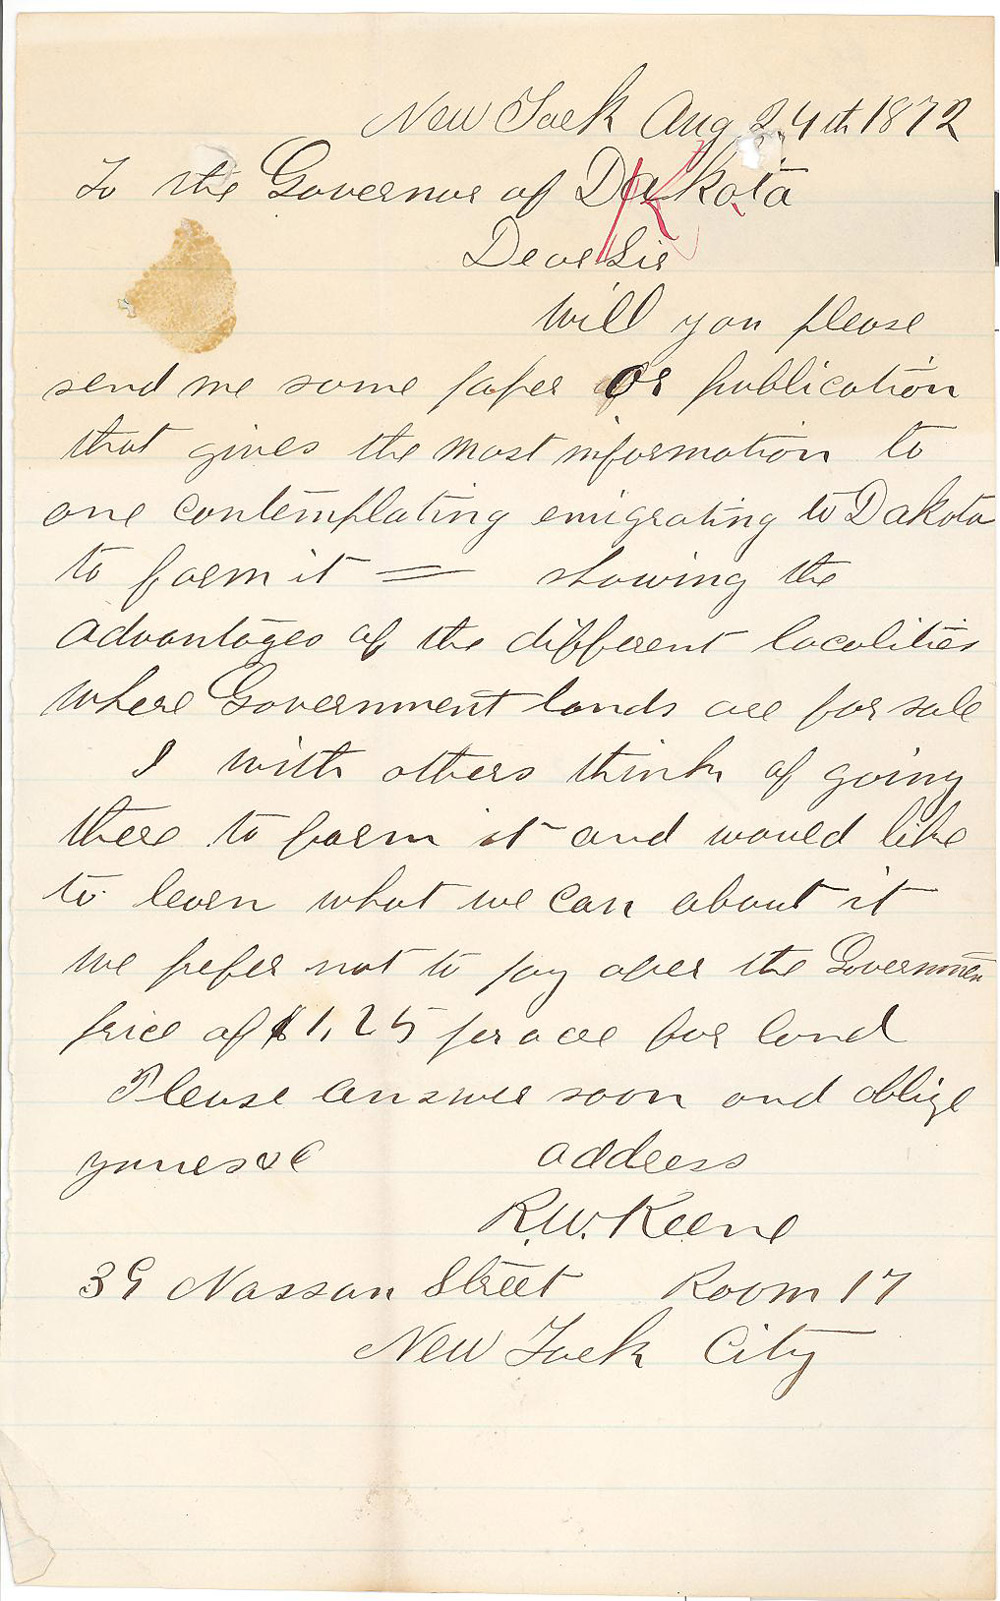 New York Aug 24th 1872
To the Governor of Dakota
Dear Sir
Will you please
send me some paper or publication
that gives the most information to
one contemplating emigrating to Dakota
to farm it = showing the
advantages of the different localities
where Government lands are for sale
I with others think of going
there to farm it and would like
to learn what we can about it
we prefer not to pay over the Governmen
price of $1,25 per acre for land
Please answer soon and oblige
yours &c address
R.W. Keene
39 Nassau Street Room 17
New York City